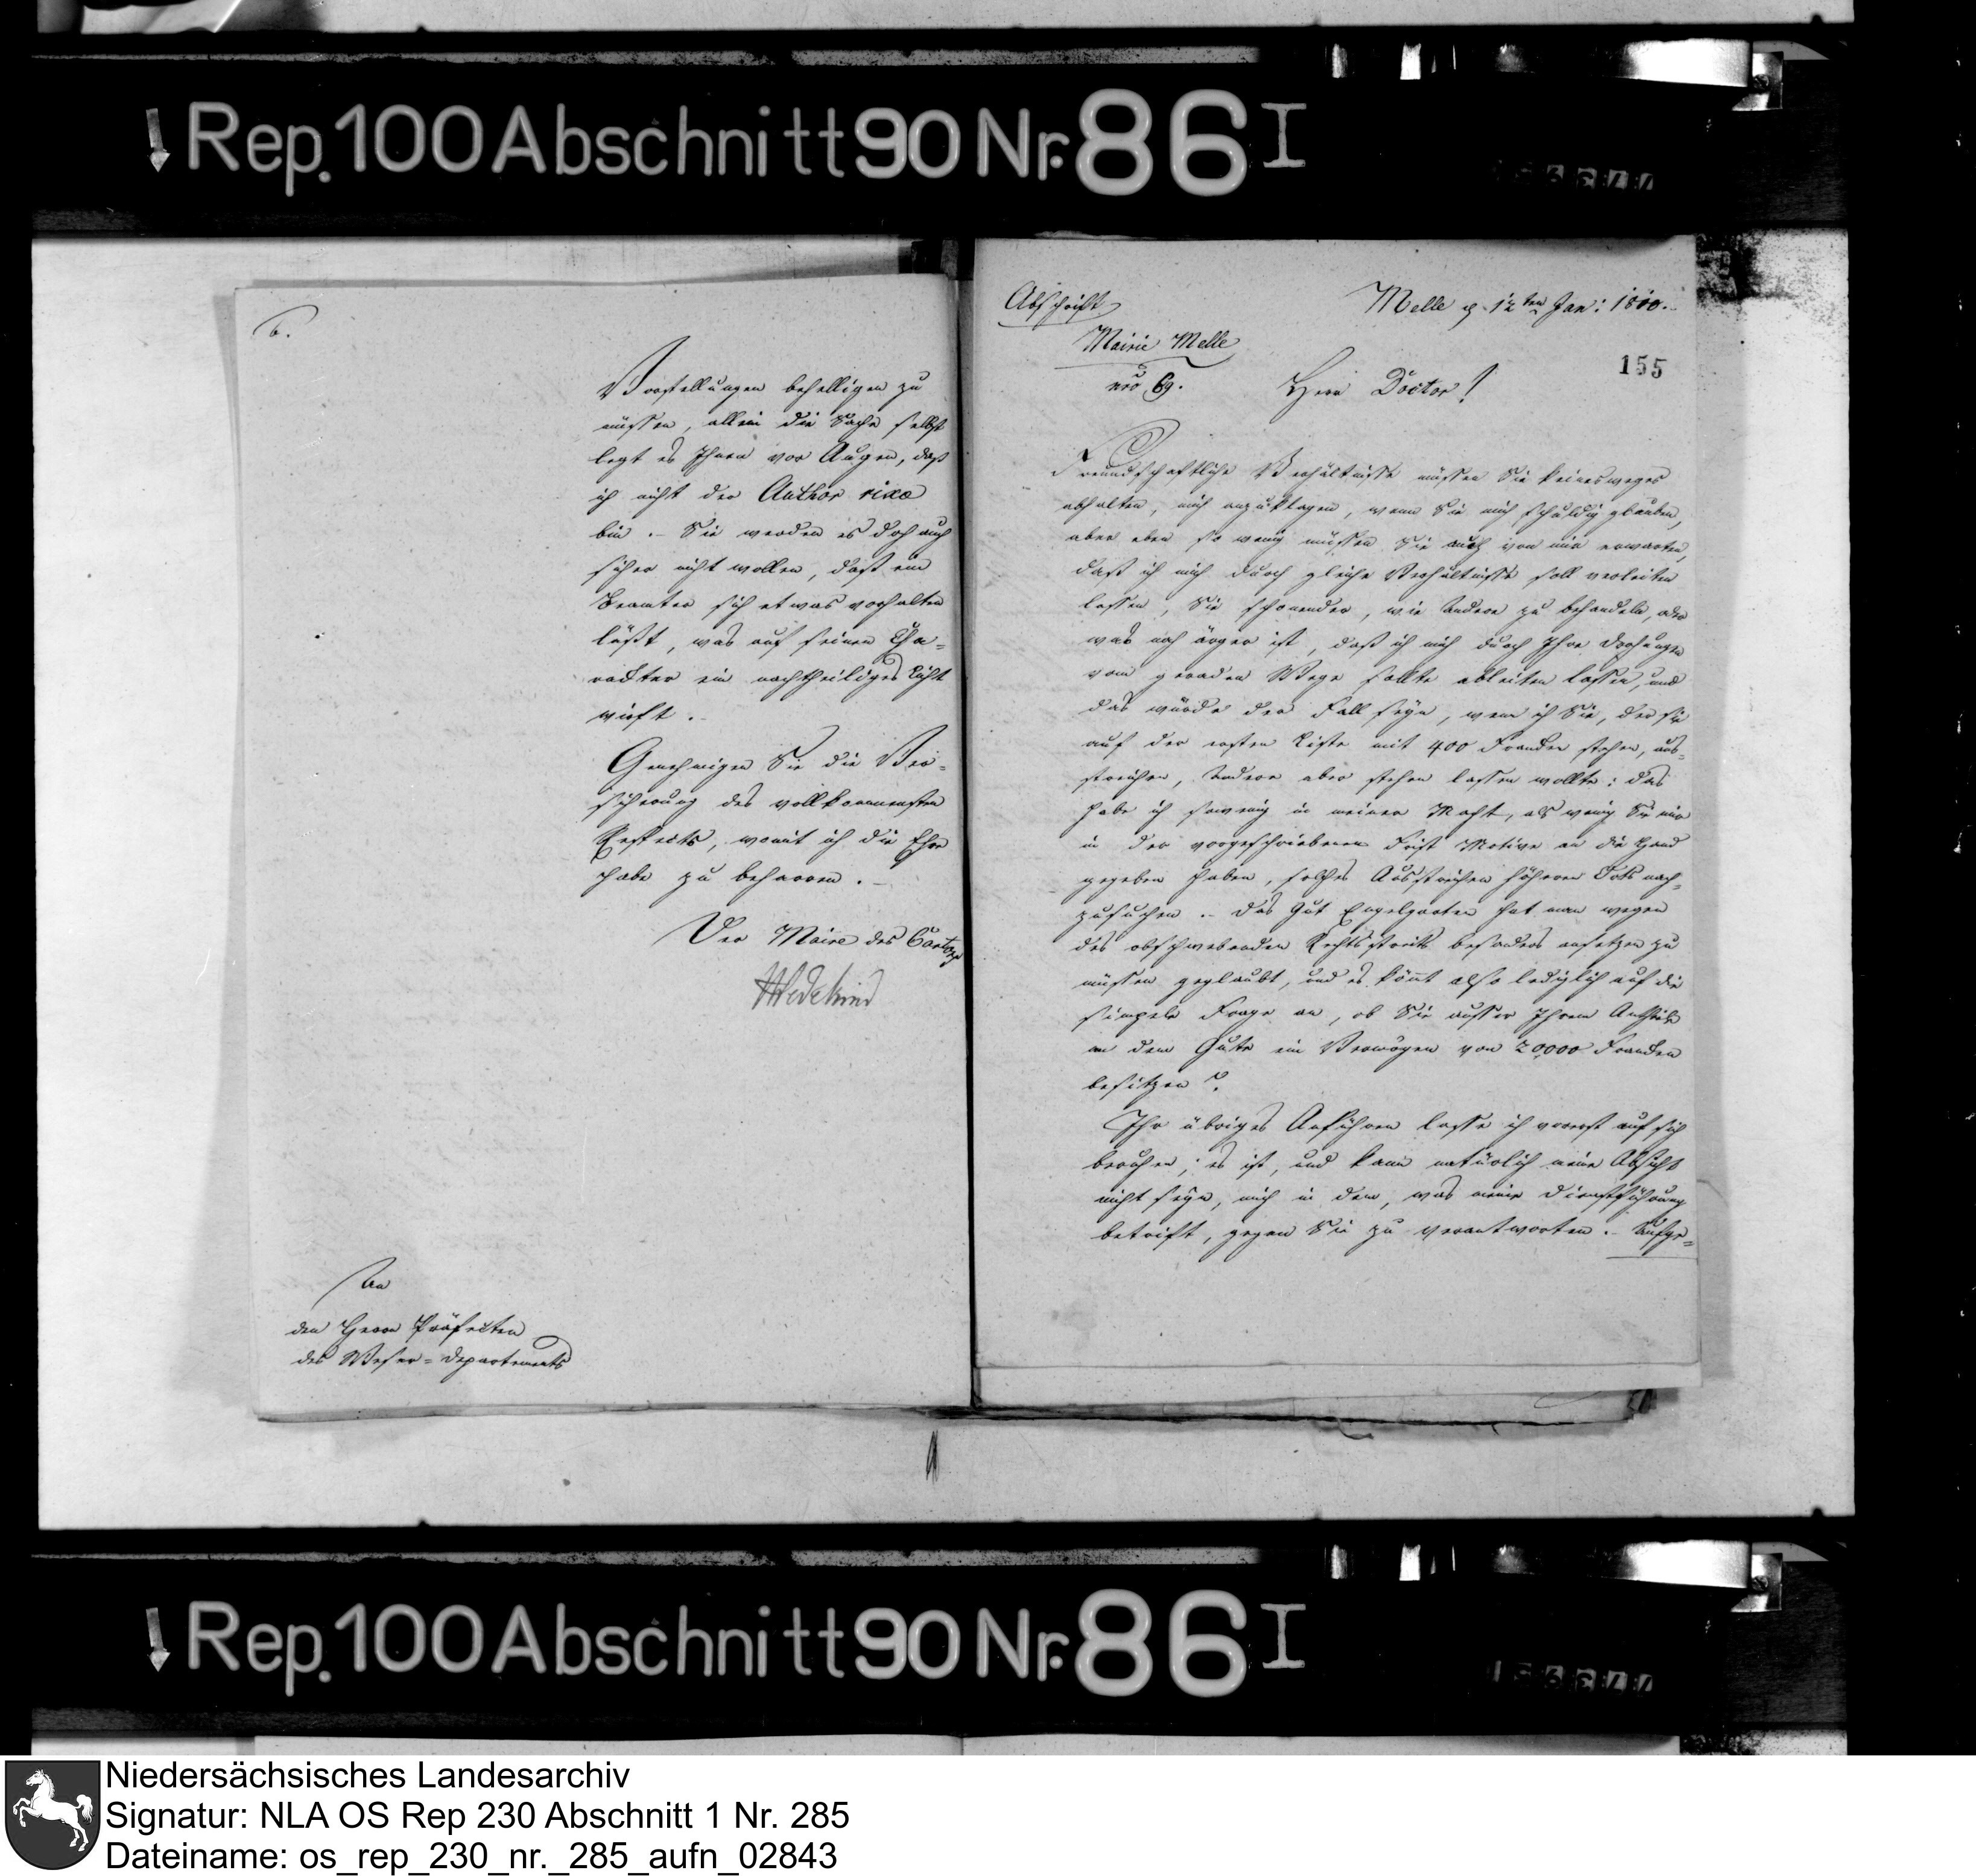 Rep. 100 Abschnitt 90 Nr. 86 I
6.
Vorstellungen behelligen zu
müssen, allein die Sache selbst
legt es Ihnen vor Augen, daß
ich nicht der Author rixae
bin. – Sie werden es doch auch
sicher nicht wollen, daß ein
Beamter sich etwas vorhalten
läßt, was auf seinen Cha-
racter ein nachtheiliges Licht
wirft. –
Genehmigen Sie die Ver-
sicherung des vollkommensten
Respects, womit ich die Ehre
habe zu beharren. –
Der Maire des Cantons
Wedekind
An
den Herrn Präfecten
des Weser-Departements
Abschrift
Melle d. 12ten Jan: 1810.
Mairie Melle
nro 69.
155
Herr Doctor!
Freundschaftliche Verhältnisse müssen Sie keinesweges
abhalten, mich anzuklagen, wenn Sie mich schuldig glauben,
aber eben so wenig müssen Sie auch von mir erwarten,
daß ich mich durch gleiche Verhältnisse soll verleiten
lassen, Sie schonender, wie Andere zu behandeln, oder
was noch ärger ist, daß ich mich durch Ihre Drohungen
vom geraden Wege sollte ableiten lassen, und
das würde der Fall seyn, wenn ich Sie, der Sie
auf der ersten Liste mit 400 Franken stehen, aus-
streichen, Andere aber stehen lassen wollte: das
habe ich so wenig in meiner Macht, als wenig Sie mir
in der vorgeschriebenen Frist Motive an die Hand
gegeben haben, solches Ausstreichen höheren Orts nach-
zusuchen. – Das Gut Engelgarten hat man wegen
des obschwebenden Rechtsstreits besonders ansetzen zu
müssen geglaubt, und es kömt also lediglich auf die
simpele Frage an, ob Sie ausser Ihrem Antheile
an dem Gute ein Vermögen von 20,000 Franken
besitzen?
Ihr übriges Anführen lasse ich vorerst auf sich
beruhen; es ist, und kann natürlich meine Absicht
nicht seyn, mich in dem, was meine Dienstführung
betrift, gegen Sie zu verantworten. – Aufge-
Rep. 100 Abschnitt 90 Nr. 86 I
Niedersächsisches Landesarchiv
Signatur: NLA OS Rep 230 Abschnitt 1 Nr. 285
Dateiname: os_rep_230_nr._285_aufn_02843